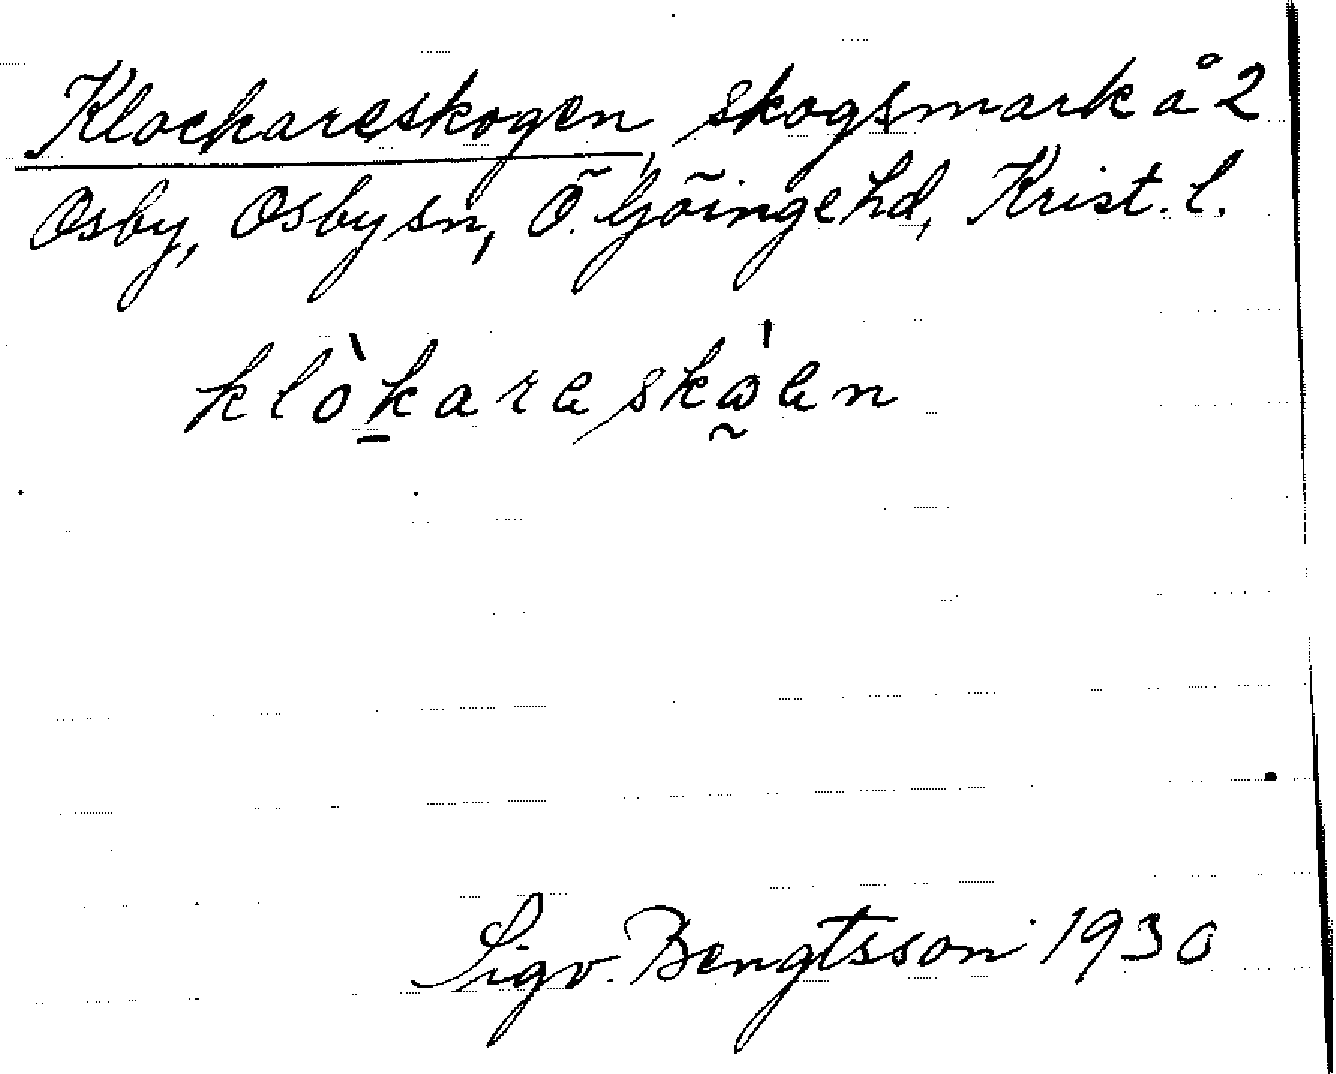 Klockareskogen, skogsmark å 2
Osby, Osby sn, Ö. Göinge hd, Krist. l.
klòkareskåen
Sigv. Bengtsson 1930